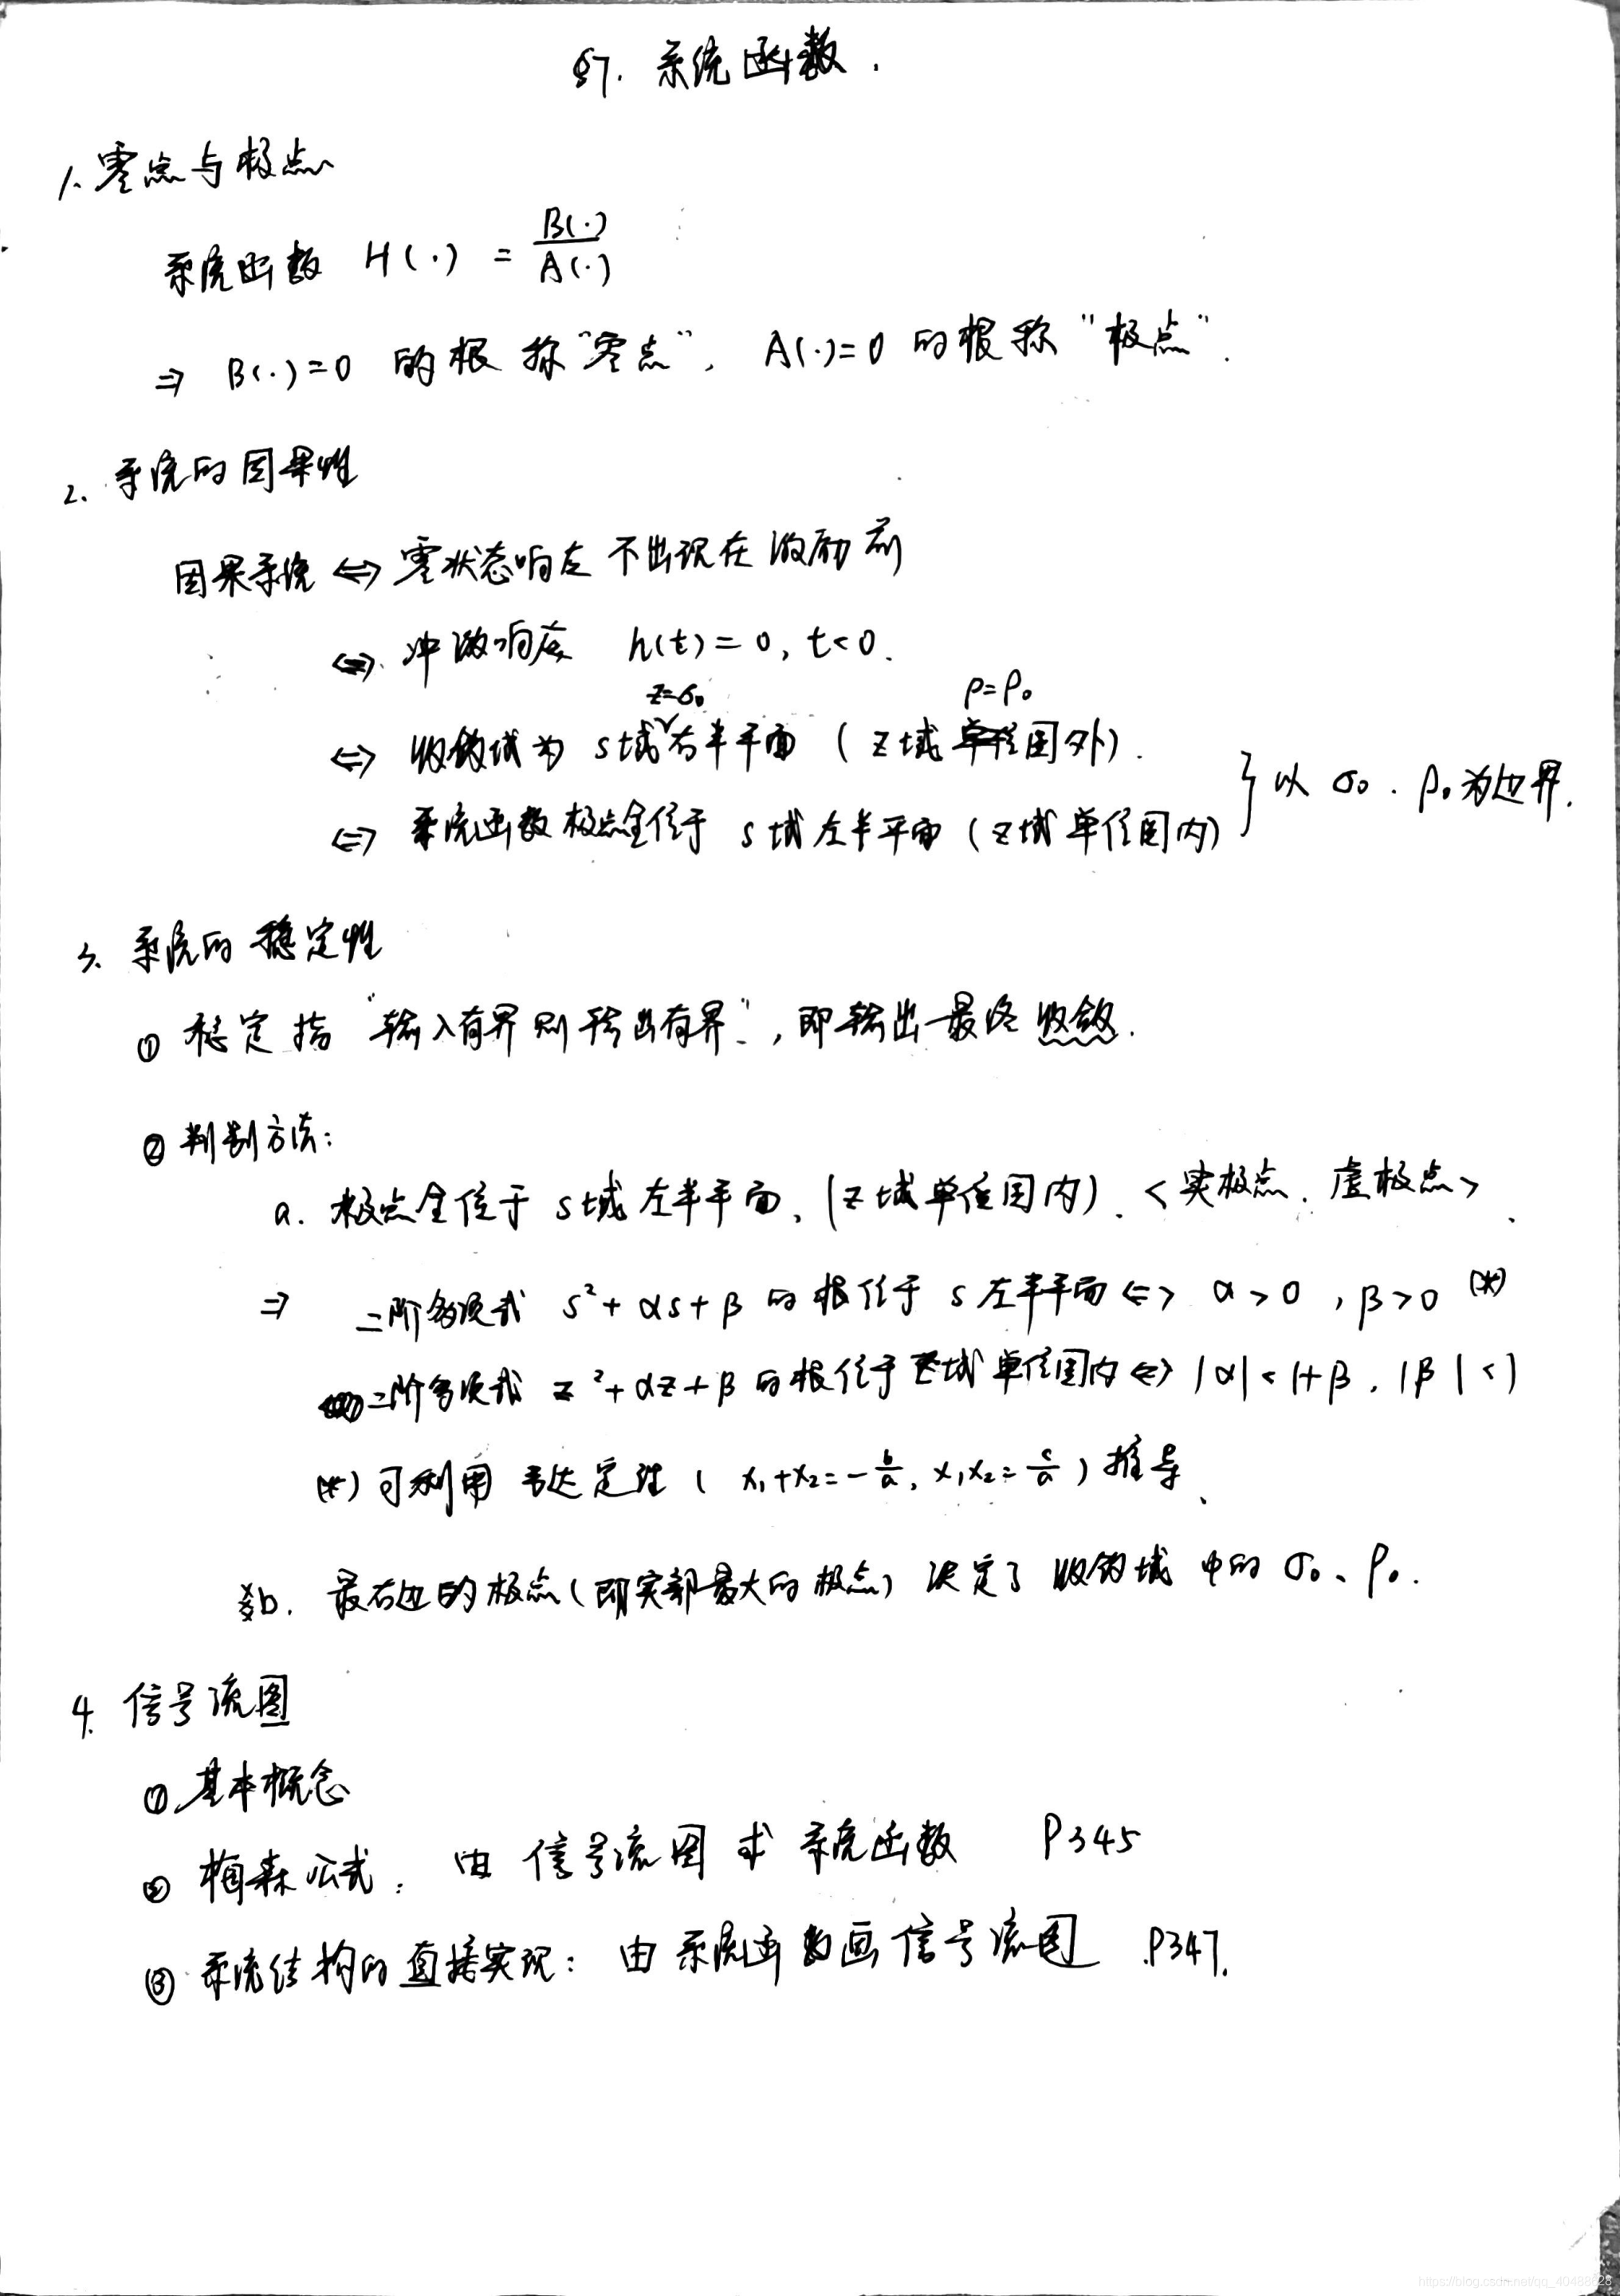 §7. 系统函数.
1. 零点与极点
系统函数 H(·) = B(·)/A(·)
⇒ B(·)=0 的根称“零点”, A(·)=0 的根称“极点”.
2. 系统的因果性
因果系统 ⇔ 零状态响应不出现在激励前
⇔ 冲激响应 h(t)=0, t<0.
z=σ₀ ρ=ρ₀
⇔ 收敛域为 s域右半平面 (z域圆外).
} 以 σ₀. ρ₀为边界.
⇔ 系统函数极点全位于 s域左半平面 (z域单位圆内)
3. 系统的稳定性
① 稳定指“输入有界则输出有界”, 即输出最终收敛.
② 判别方法:
a. 极点全位于 s域左半平面, (z域单位圆内). <实极点. 虚极点>.
⇒ 二阶多项式 s²+αs+β 的根位于 s左半平面 ⇔ α>0, β>0 (*)
二阶多项式 z²+αz+β 的根位于z域单位圆内 ⇔ |α|<1+β, |β|<1
(*) 可利用 韦达定理 (x₁+x₂=-b/a, x₁x₂=c/a) 推导.
※b. 最右边的极点(即实部最大的极点) 决定了收敛域中的 σ₀、ρ₀.
4. 信号流图
① 基本概念
② 梅森公式: 由信号流图求系统函数 P345
③ 系统结构的直接实现: 由系统函数画信号流图 P347.
https://blog.csdn.net/qq_40488628